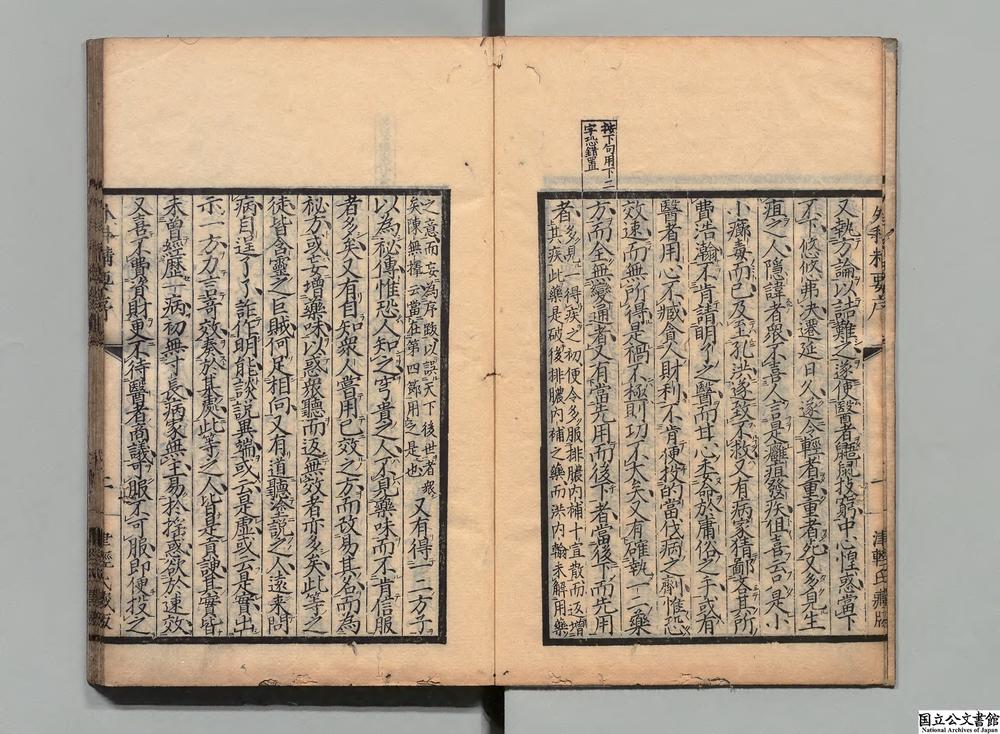 按下句用下二
字恐錯置
又執方論以詰難之遂使醫者鼯鼠技窮中心惶惑當下
不下悠悠弗決遷延日久遂令輕者重重者死又多見生
疽之人隱諱者衆不喜人言是癰疽發疾但喜云是小
小癤毒而已及至孔洪遂致不救又有病家猜鄙吝其所
費浩瀚不肯請明了之醫而甘心委命於庸俗之手或有
醫者用心不臧貪人財利不肯便投的當伐病之劑惟恐
效速而無所得是禍不極則功不大矣又有確執一二藥
方而全無變通者又有當先用而後下者當後下而先用
者多見一得疾之初便令多服排膿內補十宣散而返增
其疾此藥是破後排膿內補之藥而洪內翰未解用藥
之意而妄為序跋以誤天下後世者衆
矣陳無擇云當在第四節用之是也
又有得一二方子
以為秘傳惟恐人知之窮貴之人不見藥味而不肯信服
者多矣又有自知衆人嘗用已效之方而改易其名而為
秘方或妄增藥味以惑衆聽而返無效者亦多矣此等之
徒皆含靈之巨賊何足相向又有道聽塗說之人遠來問
病自逞了了詐作明能談說異端或云是虛或云是實出
示一方力言奇效奏於某處此等之人皆是貢諛其實皆
未曾經歷一病初無寸長病家無主易於搖惑欲於速效
又喜不費資財更不待醫者商議可服不可服即便投之
外科精要序
一
津輕氏藏版
國立公文書館
National Archives of Japan